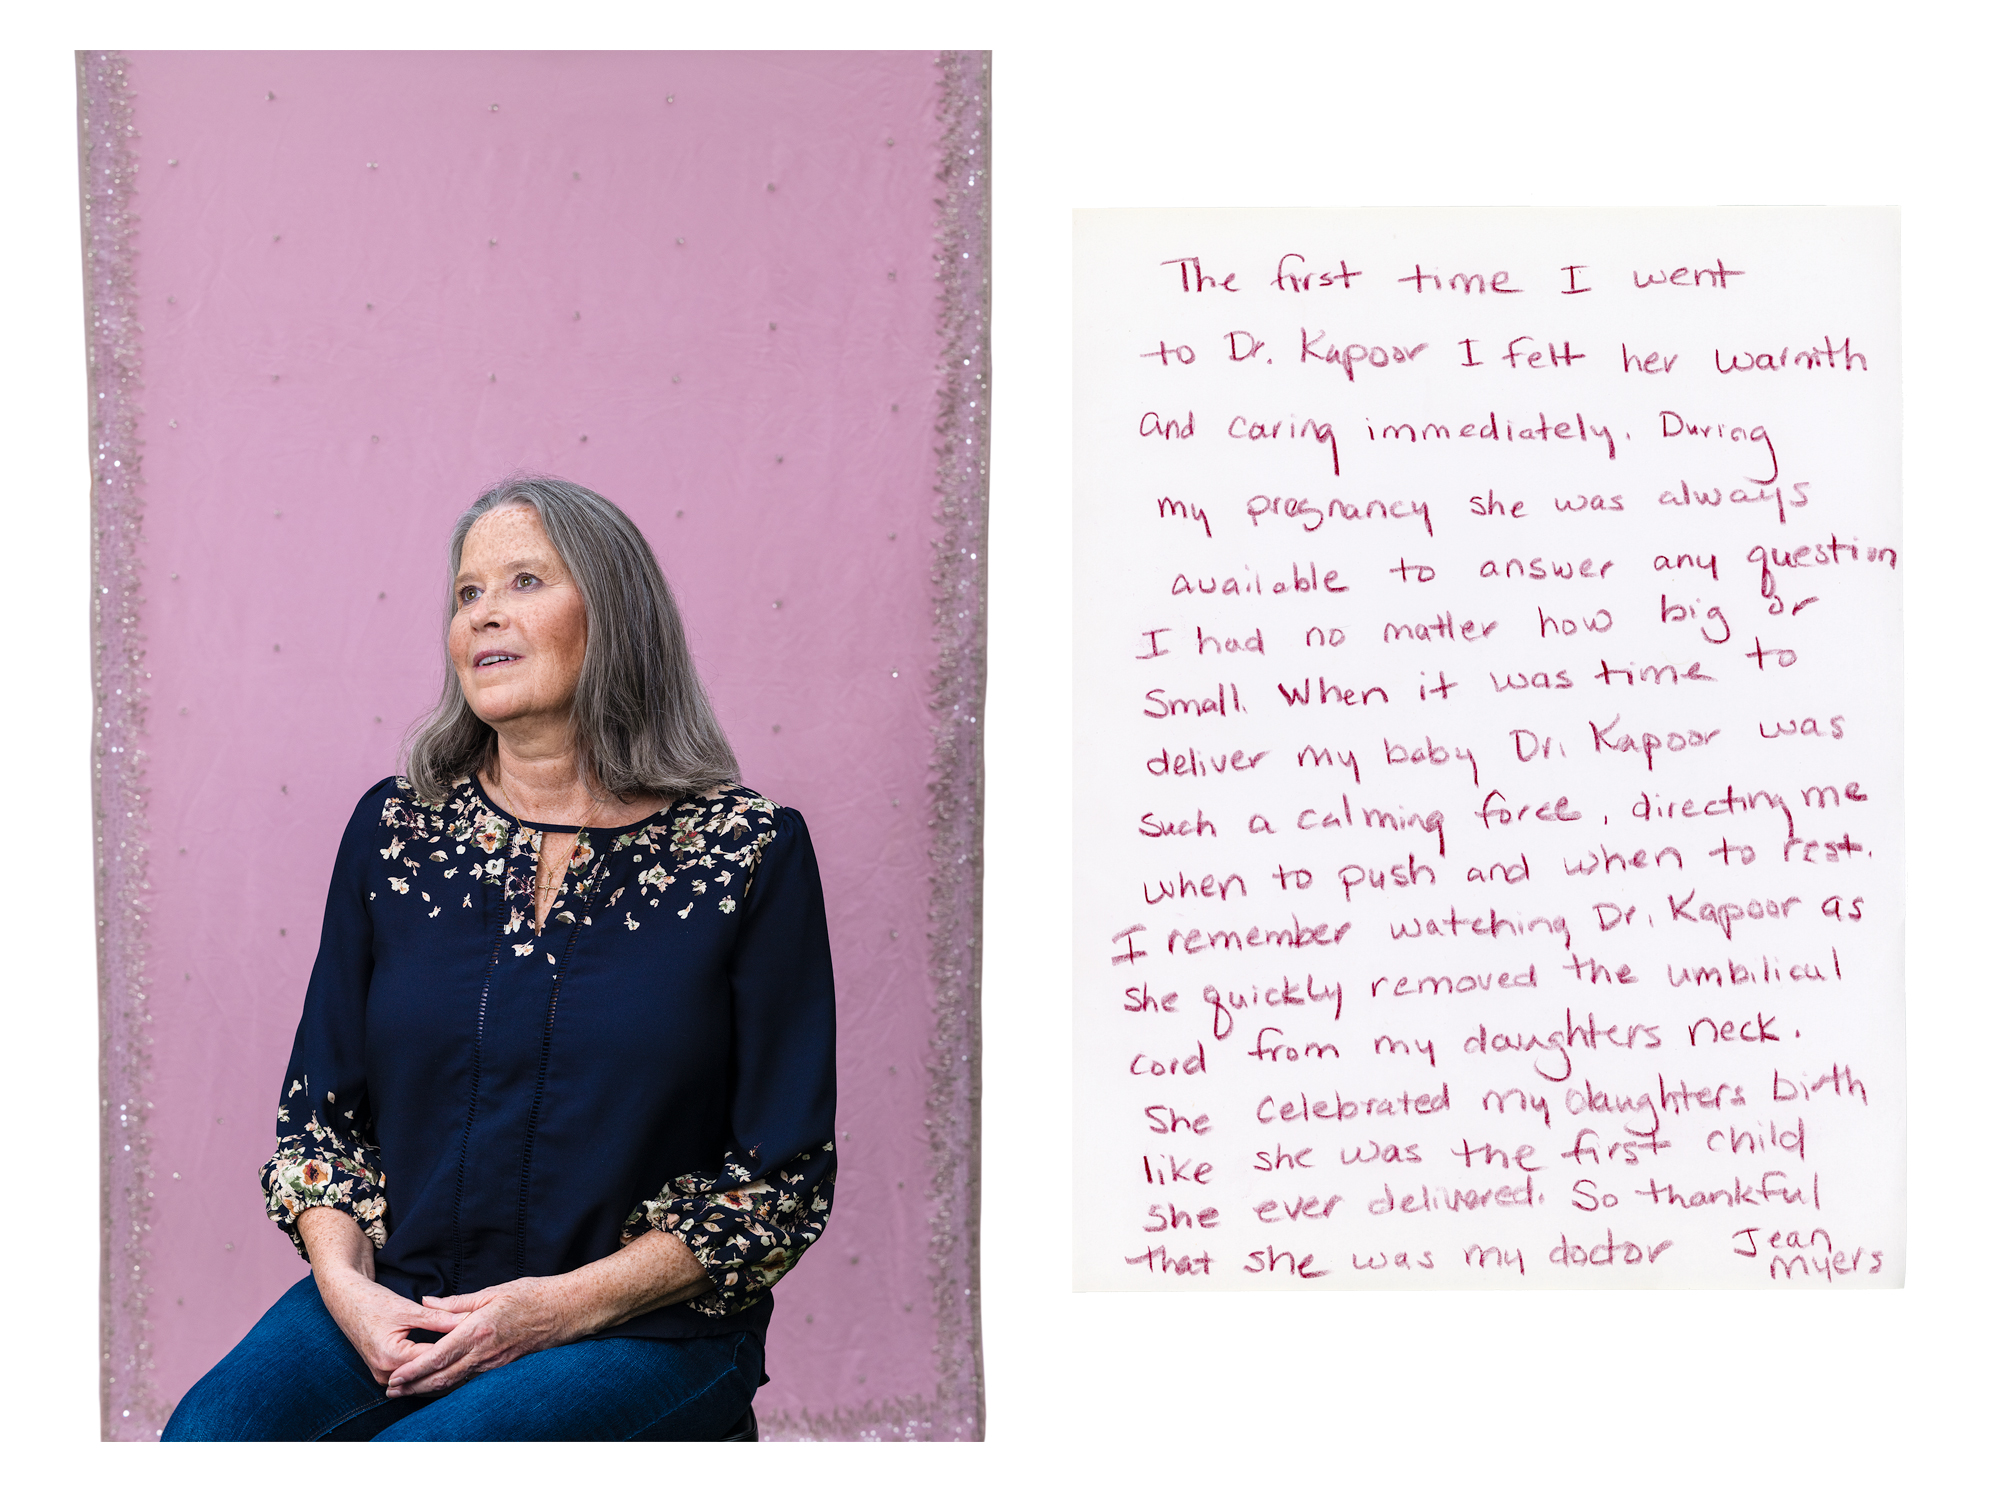 The first time I went
to Dr. Kapoor I felt her warmth
and caring immediately. During
my pregnancy she was always
available to answer any question
I had no matter how big or
small. When it was time to
deliver my baby Dr. Kapoor was
such a calming force, directing me
when to push and when to rest.
I remember watching Dr. Kapoor as
she quickly removed the umbilical
cord from my daughters neck.
She celebrated my daughters birth
like she was the first child
she ever delivered. So thankful
that she was my doctor Jean
Myers